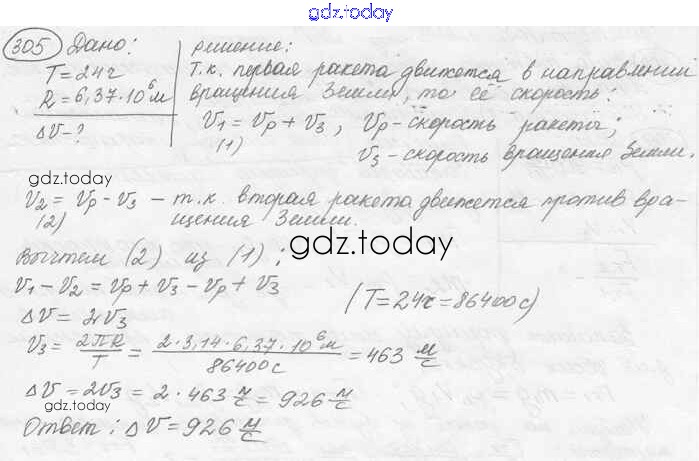 gdz.today
305 Дано:
T=24ч
R=6,37·10⁶м
ΔV-?
решение:
Т.к. первая ракета движется в направлении
вращения Земли, то её скорость:
V₁=Vр+V₃, Vр-скорость ракеты;
(1)
V₃-скорость вращения Земли.
gdz.today
V₂=Vр-V₃ - т.к. вторая ракета движется против вра-
(2) щения Земли.
gdz.today
Вычтем (2) из (1):
V₁-V₂=Vр+V₃-Vр+V₃
(T=24ч=86400с)
ΔV=2V₃
V₃=2πR/T=2·3,14·6,37·10⁶м/86400с=463 м/с
ΔV=2V₃=2·463 м/с=926 м/с
gdz.today
Ответ: ΔV=926 м/с